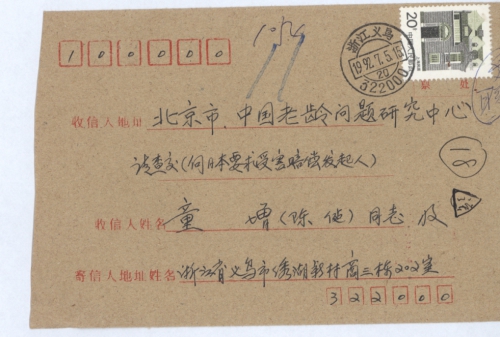 100000
浙江义乌
1992.7.5.15
20
322000
20分
收信人地址 北京市、中国老龄问题研究中心
请查交(向日本要求受害赔偿发起人)
收信人姓名 童 增(陈健)同志 收
寄信人地址姓名 浙江省义乌市绣湖新村商三栋202室
322000